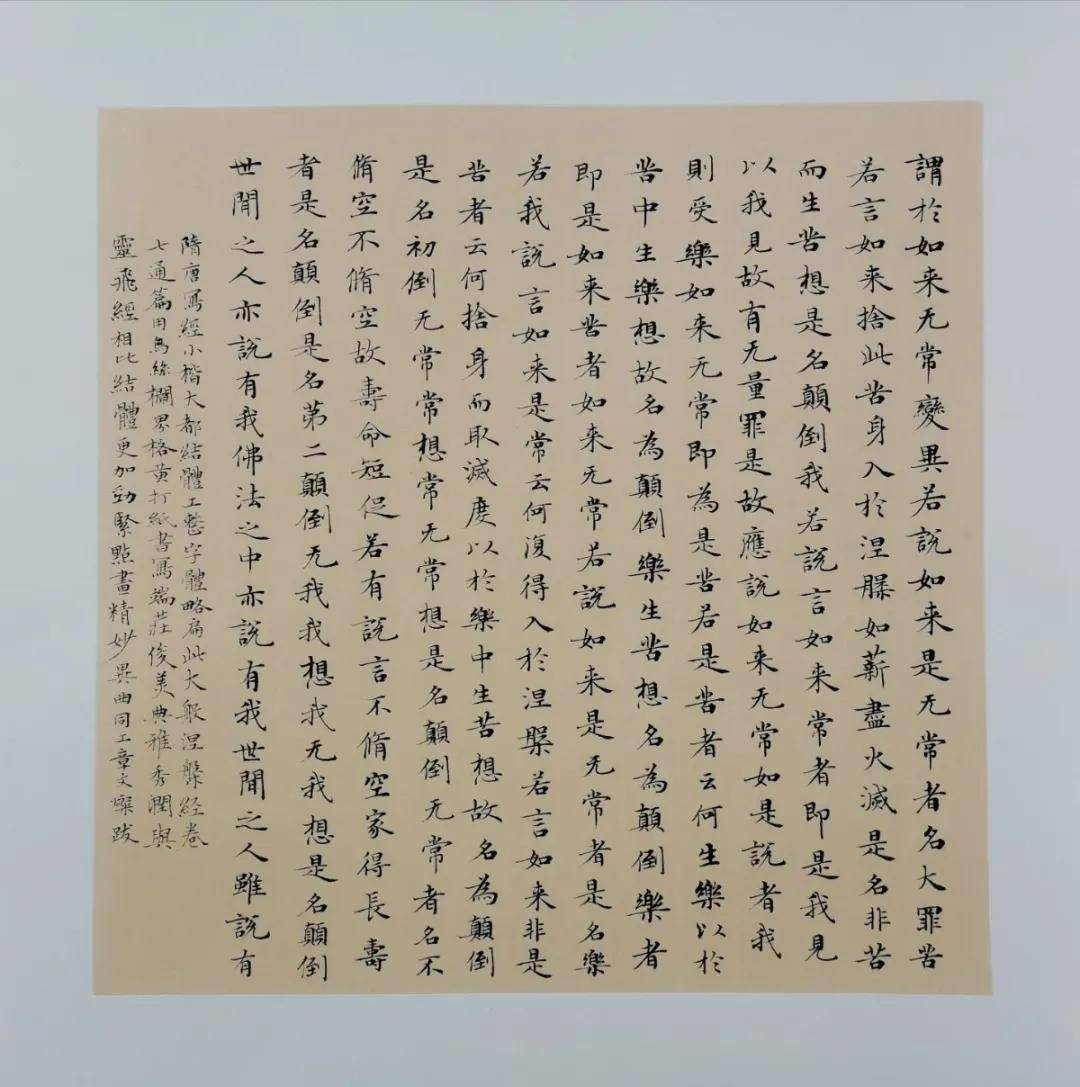 謂於如来无常變異若說如来是无常者名大罪苦
若言如来捨此苦身入於涅槃如薪盡火滅是名非苦
而生苦想是名顛倒我若說言如来常者即是我見
以我見故有无量罪是故應說如来无常如是說者我
則受樂如来无常即為是苦若是苦者云何生樂以於
苦中生樂想故名為顛倒樂生苦想名為顛倒樂者
即是如来苦者如来无常若說如来是无常者是名樂
若我說言如来是常云何復得入於涅槃若言如来非是
苦者云何捨身而取滅度以於樂中生苦想故名為顛倒
是名初倒无常常想常无常想是名顛倒无常者名不
脩空不脩空故壽命短促若有說言不脩空家得長壽
者是名顛倒是名第二顛倒无我我想我无我想是名顛倒
世間之人亦說有我佛法之中亦說有我世間之人雖說有
隋唐寫經小楷大都結體工整字體略扁此大般涅槃经卷
七通篇用烏絲欄界格黄打紙書寫端莊俊美典雅秀潤與
靈飛經相比結體更加劲緊點畫精妙異曲同工章文燦跋